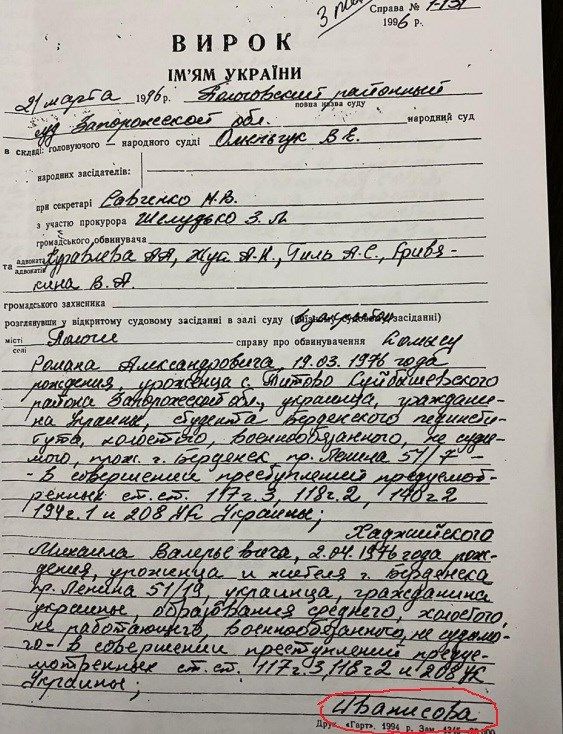 Справа №
1996 р.
ВИРОК
ІМ'ЯМ УКРАЇНИ
21 марта 1996 р. Пологовский районный
повна назва суду
суд Запорожской обл. народний суд
в складі: головуючого - народного судді Омельчук В.Е.
народних засідателів:
при секретарі Савченко Н.В.
з участю прокурора Шелудько З.Л.
громадського обвинувача
та адвоката Журавлева А.А, Жук А.Н., Гиль А.С., Гривя-
адвокатів
кина В.А.
громадського захисника
розглянувши у відкритому судовому засіданні в залі суду ( засіданні)
місті Пологи справу про обвинувачення
селі
Романа Александровича, 19.03.1976 года
рождения, уроженца с. Титово Куйбышевского
района Запорожской обл., украинца, граждани-
на Украины, студента Бердянского пединсти-
тута, холостого, военнообязанного, не суди-
мого, прож. г. Бердянск пр. Ленина 51/7 -
- в совершении преступлений предусмот-
ренных ст.ст. 117 ч.3, 118 ч.2, 140 ч.2
194 ч.1 и 208 УК Украины;
Хаджийского
Михаила Валерьевича, 2.04.1976 года рож-
дения, уроженца и жителя г. Бердянска
пр. Ленина 51/19, украинца, гражданина
Украины, образования среднего, холостого,
не работающего, военнообязанного, не судимо-
го - в совершении преступлений преду-
смотренных ст.ст. 117 ч.3, 118 ч2 и 208 УК
Украины;
Иванисова
Друк. «Гарт», 1994 р. Зам.